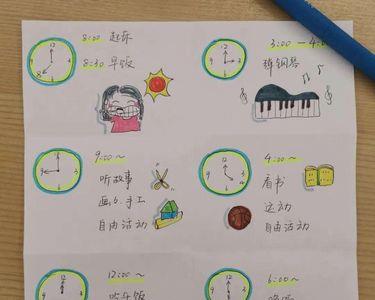 8:00 起床
8:30 早饭
3:00 — 4:00
弹钢琴
9:00 ~
听故事
画画.手工
自由活动
4:00 ~
看书
运动
自由活动
12:00 ~
吃午饭
6:00 ~
晚饭